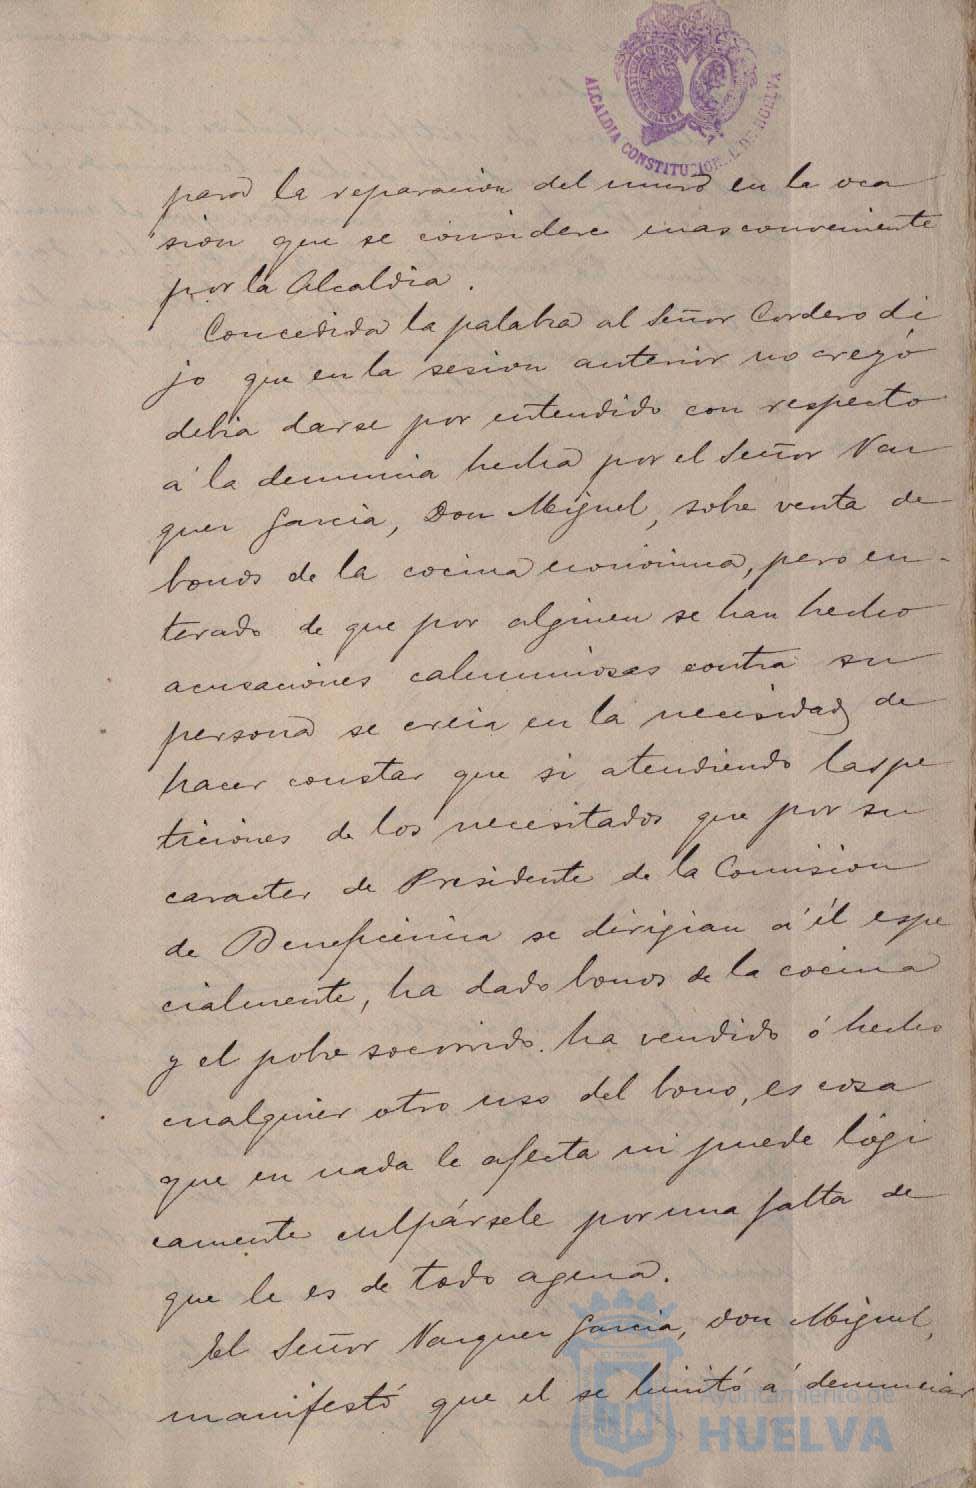 ALCALDIA CONSTITUCIONAL DE HUELVA
para la reparacion del muro en la oca
sion que se considere mas conveniente
por la Alcaldia.
Concedida la palabra al Señor Cordero di
jo que en la sesion anterior no creyó
debia darse por entendido con respecto
á la denuncia hecha por el Señor Vaz
quez Garcia, Don Miguel, sobre venta de
bonos de la cocina económica, pero en-
terado de que por alguien se han hecho
acusaciones calumniosas contra su
persona se creia en la necesidad de
hacer constar que si atendiendo las pe
ticiones de los necesitados que por su
caracter de Presidente de la Comision
de Beneficencia se dirigian á él espe
cialmente, ha dado bonos de la cocina
y el pobre socorrido ha vendido ó hecho
cualquier otro uso del bono, es cosa
que en nada le afecta ni puede lógi
camente culpársele por una falta de
que le es de todo agena.
El Señor Vazquez Garcia, Don Miguel,
manifestó que el se limitó á denunciar
Ayuntamiento de
HUELVA